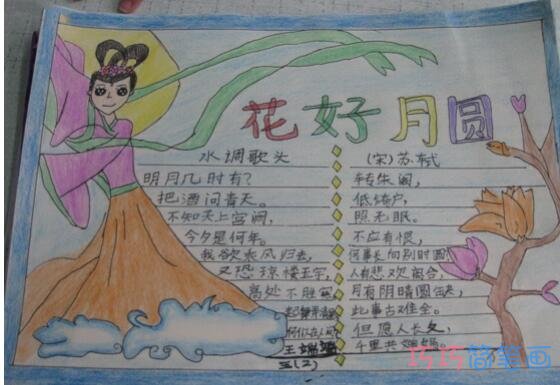 花好月圆
水调歌头
明月几时有?
把酒问青天。
不知天上宫阙,
今夕是何年。
我欲乘风归去,
又恐琼楼玉宇,
高处不胜寒
起舞弄清影
何似在人间
王
三(2)
(宋)苏轼
转朱阁,
低绮户,
照无眠。
不应有恨,
何事长向别时圆
人有悲欢离合,
月有阴晴圆缺,
此事古难全。
但愿人长久,
千里共婵娟。
巧巧简笔画